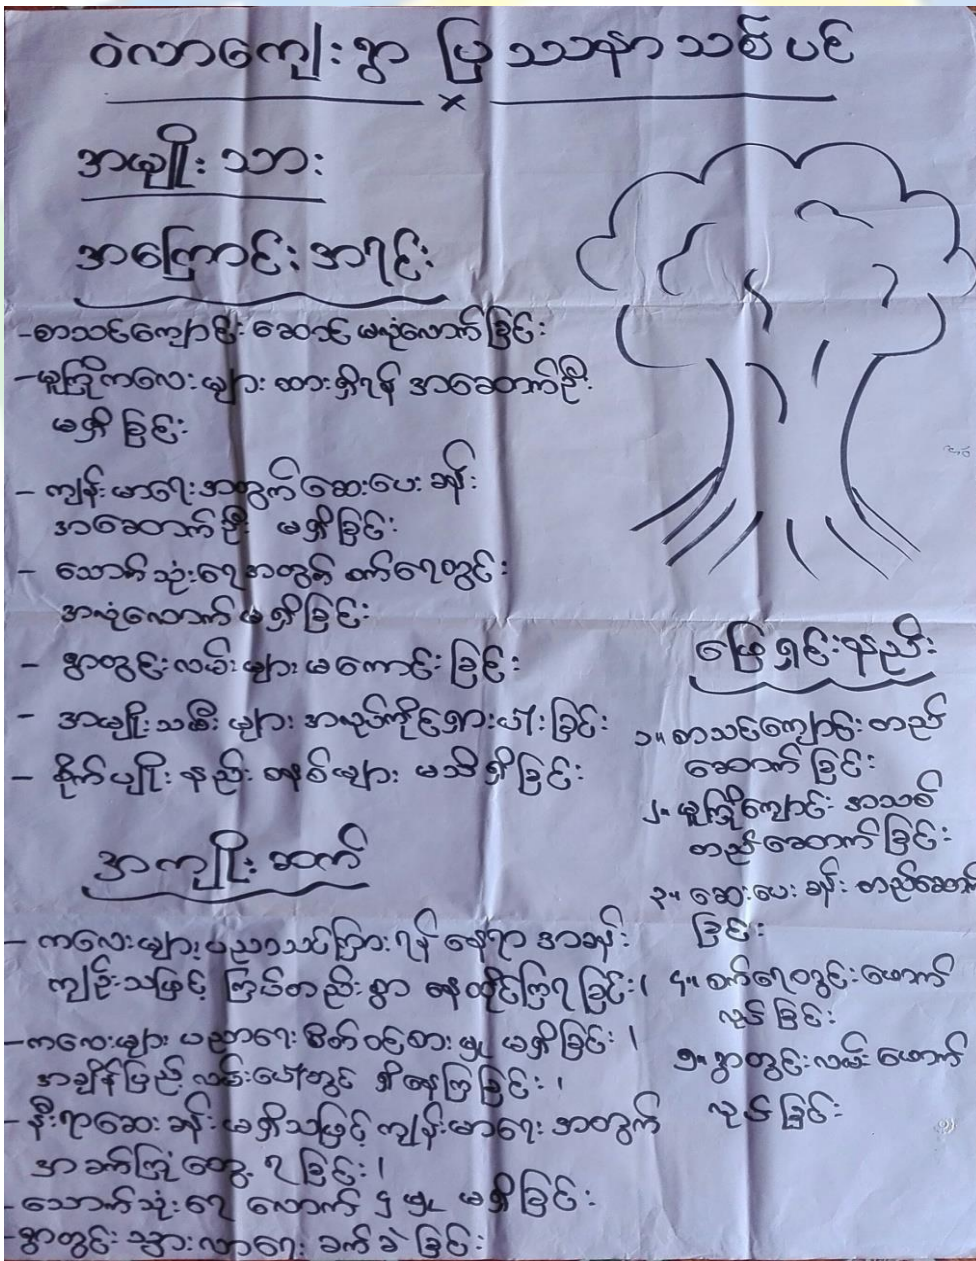 ဝဲလာကျေးရွာ ပြဿနာသစ်ပင်
အမျိုးသား
အကြောင်းအရင်း
-စာသင်ကျောင်းဆောင် မလုံလောက်ခြင်း
-မူကြိုကလေးများ ထားရှိရန် အဆောက်ဦး
မရှိခြင်း
- ကျန်းမာရေးအတွက် ဆေးပေးခန်း
အဆောက်ဦး မရှိခြင်း
- သောက်သုံးရေအတွက် စက်ရေတွင်း
အလုံလောက်မရှိခြင်း
- ရွာတွင်းလမ်းများမကောင်းခြင်း
- အမျိုးသမီးများ အလုပ်ကိုင်ရှားပါးခြင်း
- စိုက်ပျိုးနည်းစနစ်များ မသိရှိခြင်း
အကျိုးဆက်
- ကလေးများပညာသင်ကြားရန် နေရာအခန်း
ကျဉ်းသဖြင့် ကြပ်တည်းစွာ နေထိုင်ကြရခြင်း၊
-ကလေးများ ပညာရေးစိတ်ဝင်စားမှု မရှိခြင်း၊
အချိန်ပြည့် လမ်းပေါ်တွင် ရှိနေကြခြင်း၊
- နီးရာဆေးခန်းမရှိသဖြင့် ကျန်းမာရေးအတွက်
အခက်ကြုံတွေ့ရခြင်း၊
-သောက်သုံးရေ လောက်ငှမှု မရှိခြင်း
-ရွာတွင်းသွားလာရေး ခက်ခဲခြင်း
ဖြေရှင်းနည်း
၁။ စာသင်ကျောင်း တည်
ဆောက်ခြင်း
၂။ မူကြိုကျောင်း အသစ်
တည်ဆောက်ခြင်း
၃။ ဆေးပေးခန်း တည်ဆောက်
ခြင်း
၄။ စက်ရေတွင်းဖောက်
လုပ်ခြင်း
၅။ ရွာတွင်းလမ်းဖောက်
လုပ်ခြင်း